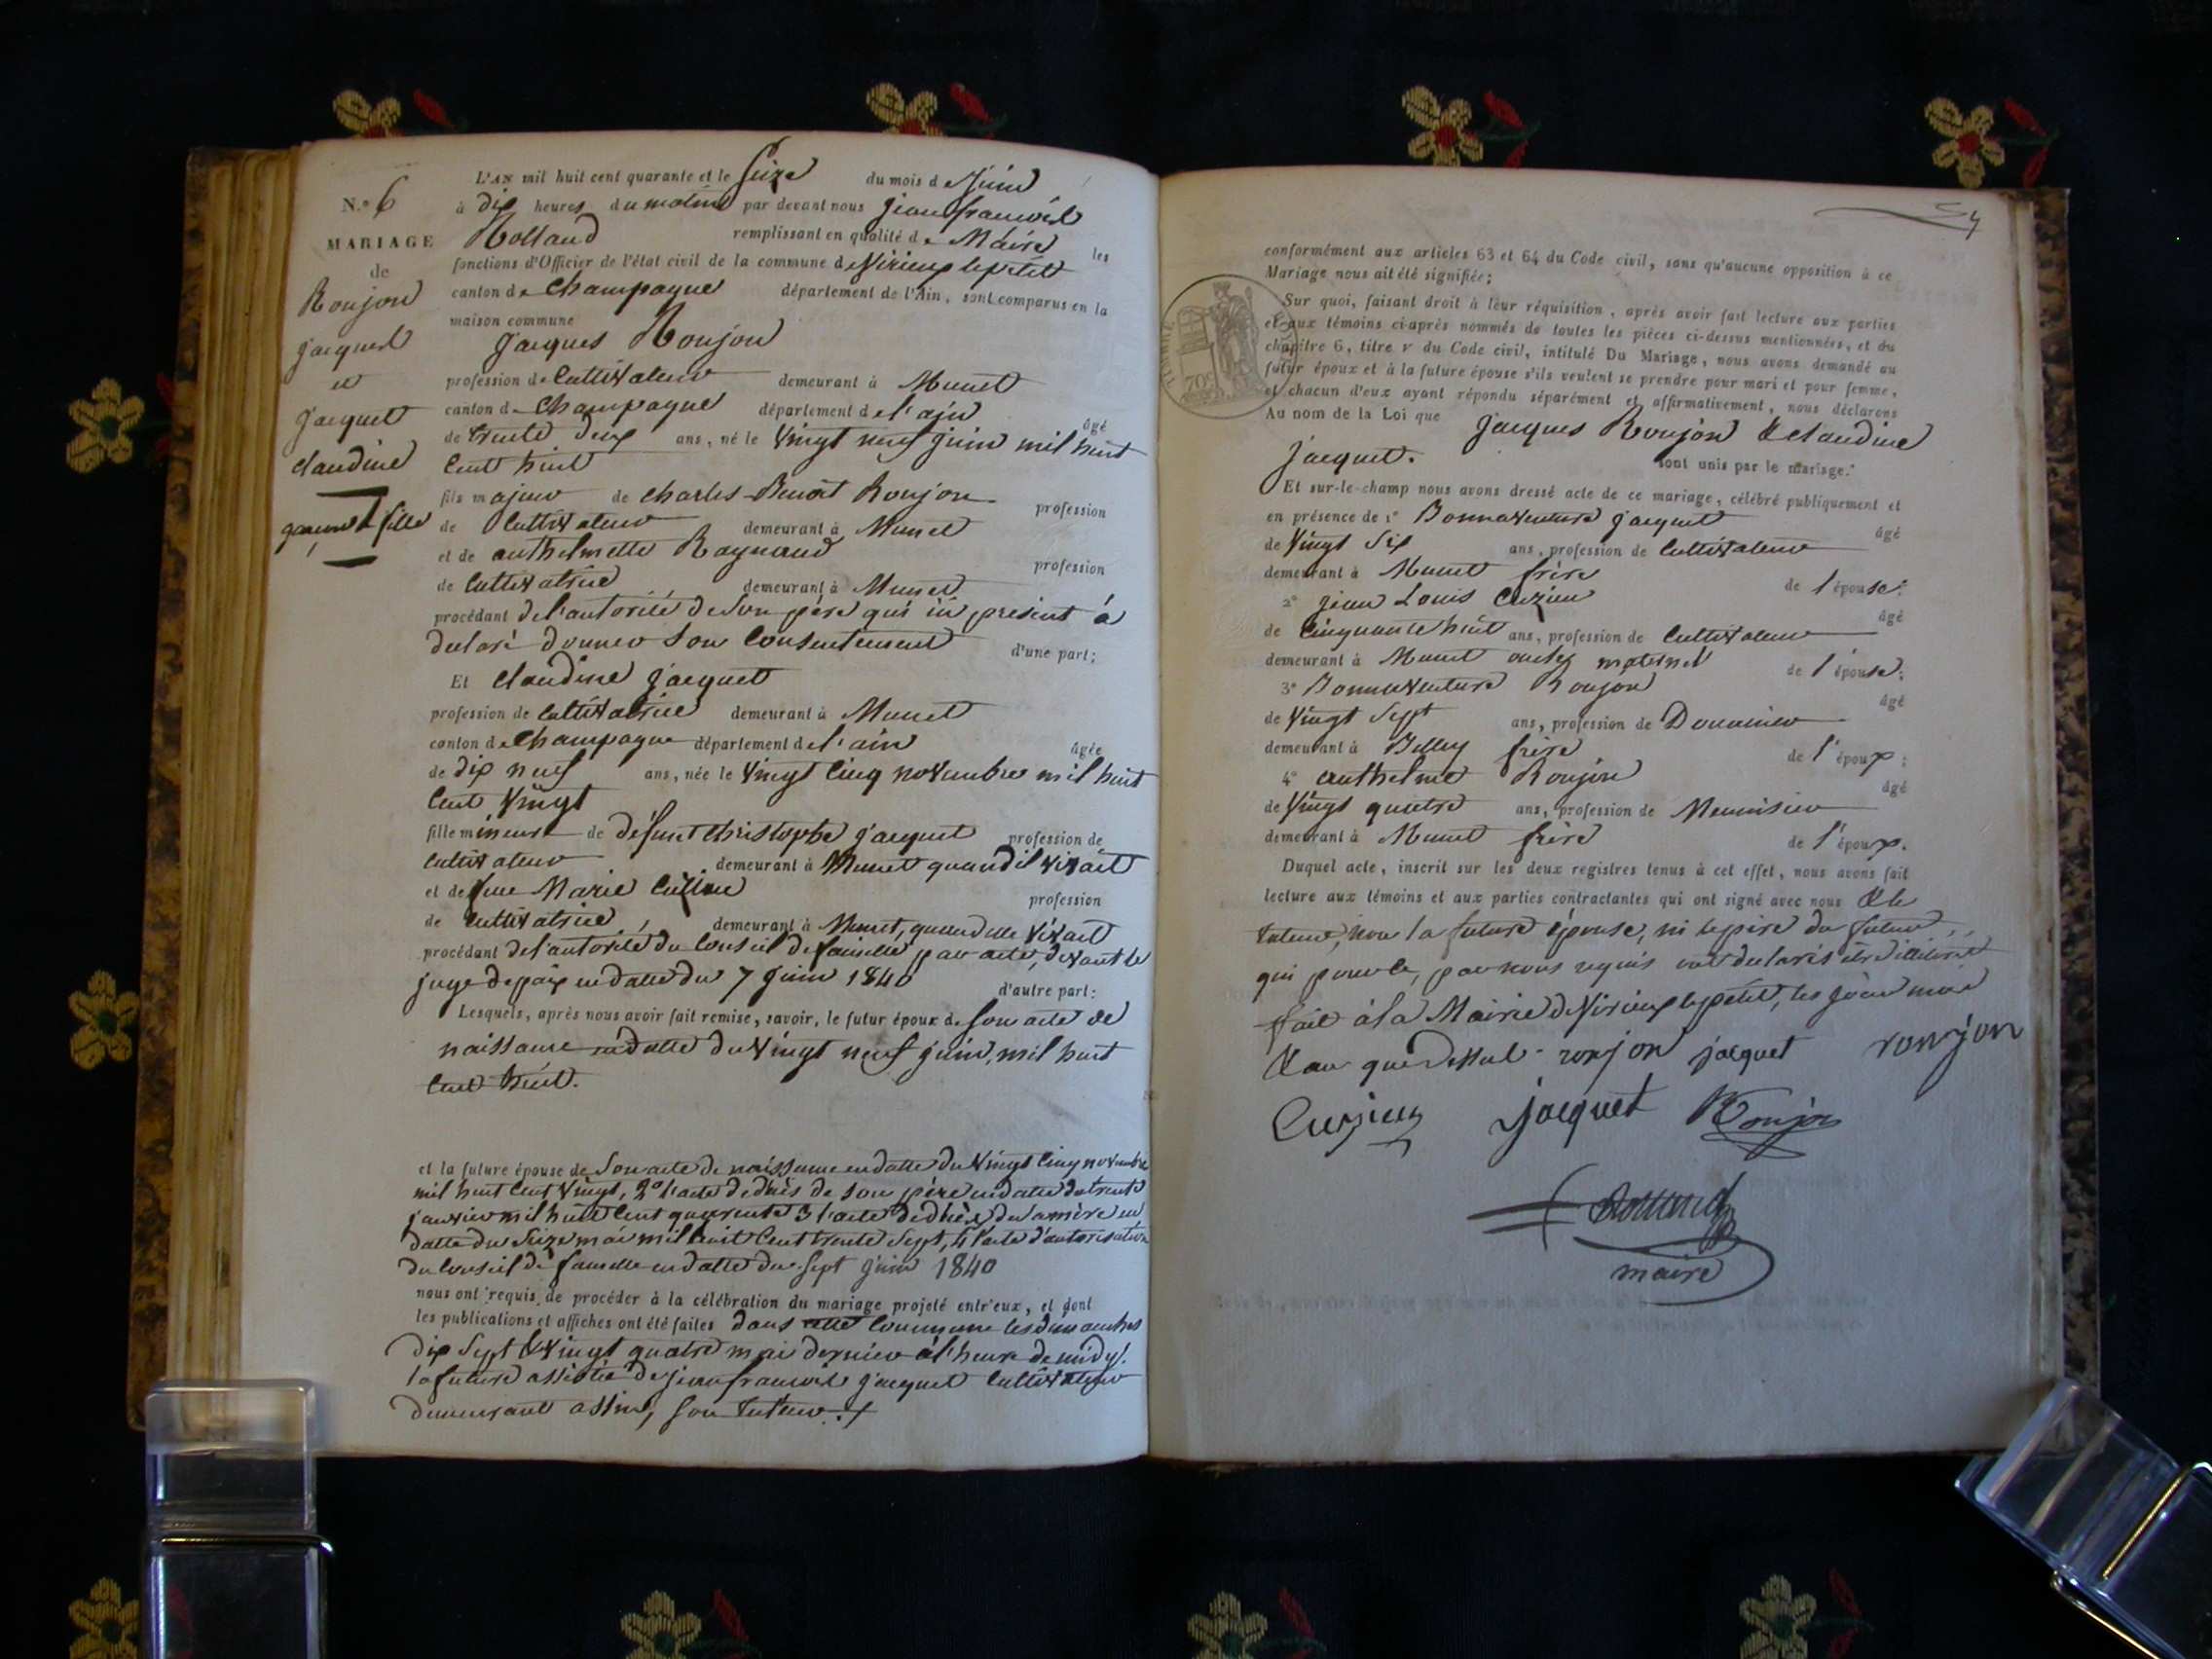 N.° 6
MARIAGE
de
Roujon
jacques
et
jacquet
claudine
garçon & fille
L'AN mil huit cent quarante et le Seize du mois de Juin
à dix heures du matin par devant nous jean françois
Rolland remplissant en qualité de Maire les
fonctions d'Officier de l'état civil de la commune de Virieux le petit
canton de Champagne département de l'Ain, sont comparus en la
maison commune
Jacques Roujon
profession de Cultivateur demeurant à Munet
canton de Champagne département de l'ain âgé
de trente deux ans, né le vingt neuf juin mil huit
Cent huit
fils majeur de Charles Benoit Roujon profession
de Cultivateur demeurant à Munet
et de anthelmette Raynaud profession
de Cultivatrice demeurant à Munet
procédant de l'autorité de Son père qui ici présent à
declaré donner Son Consentement d'une part;
Et Claudine jacquet
profession de Cultivatrice demeurant à Munet
canton de Champagne département de l'ain âgée
de dix neuf ans, née le vingt Cinq novembre mil huit
Cent vingt
fille mineure de défunt Christophe jacquet profession de
Cultivateur demeurant à Munet quand il vivait
et de feue Marie Cuzieu profession
de Cultivatrice, demeurant à Munet, quand elle vivait
procédant de l'autorité du Conseil de famille par acte, devant le
juge de paix en datte du 7 juin 1840 d'autre part:
Lesquels, après nous avoir fait remise, savoir, le futur époux de Son acte de
naissance en datte du vingt neuf juin, mil huit
Cent huit.
et la future épouse de Son acte de naissance en datte du vingt Cinq novembre
mil huit Cent vingt, 2° l'acte de décès de Son père en datte du trente
janvier mil huit Cent quarente 3 l'acte de décès de sa mère en
datte du Seize mai mil huit Cent trente Sept, 4 l'acte d'autorisation
du Conseil de famille en datte du Sept juin 1840
nous ont requis de procéder à la célébration du mariage projeté entr'eux, et dont
les publications et affiches ont été faites dans cette Commune les dimanches
dix Sept & vingt quatre mai dernier à l'heure de midy.
la future assistée de jean françois jacquet Cultivateur
demeurant assin, Son tuteur.
4
conformément aux articles 63 et 64 du Code civil, sans qu'aucune opposition à ce
Mariage nous ait été signifiée;
Sur quoi, faisant droit à leur réquisition, après avoir fait lecture aux parties
et aux témoins ci-après nommés de toutes les pièces ci-dessus mentionnées, et du
chapitre 6, titre v du Code civil, intitulé Du Mariage, nous avons demandé au
futur époux et à la future épouse s'ils veulent se prendre pour mari et pour femme,
et chacun d'eux ayant répondu séparément et affirmativement, nous déclarons
Au nom de la Loi que jacques Roujon & claudine
jacquet. sont unis par le mariage.
Et sur-le-champ nous avons dressé acte de ce mariage, célébré publiquement et
en présence de 1° Bonnaventure jacquet âgé
de vingt Six ans, profession de Cultivateur
demeurant à Munet frère de l'épouse;
2° jean Louis Cuzieu âgé
de Cinquante huit ans, profession de Cultivateur
demeurant à Munet oncle maternel de l'épouse;
3° Bonnaventure Roujon âgé
de vingt Sept ans, profession de Douanier
demeurant à Belley frère de l'époux;
4° anthelme Roujon âgé
de vingt quatre ans, profession de Menuisier
demeurant à Munet frère de l'époux.
Duquel acte, inscrit sur les deux registres tenus à cet effet, nous avons fait
lecture aux témoins et aux parties contractantes qui ont signé avec nous & le
tuteur, non la future épouse, ni le père du futur,
qui pour ce, par nous requis ont declarés être illitérés
fait à la Mairie de Virieux le petit, les jour mois
& an que dessus. roujon jacquet roujon
Cuzieu jacquet Roujon
Rolland
maire
70 c